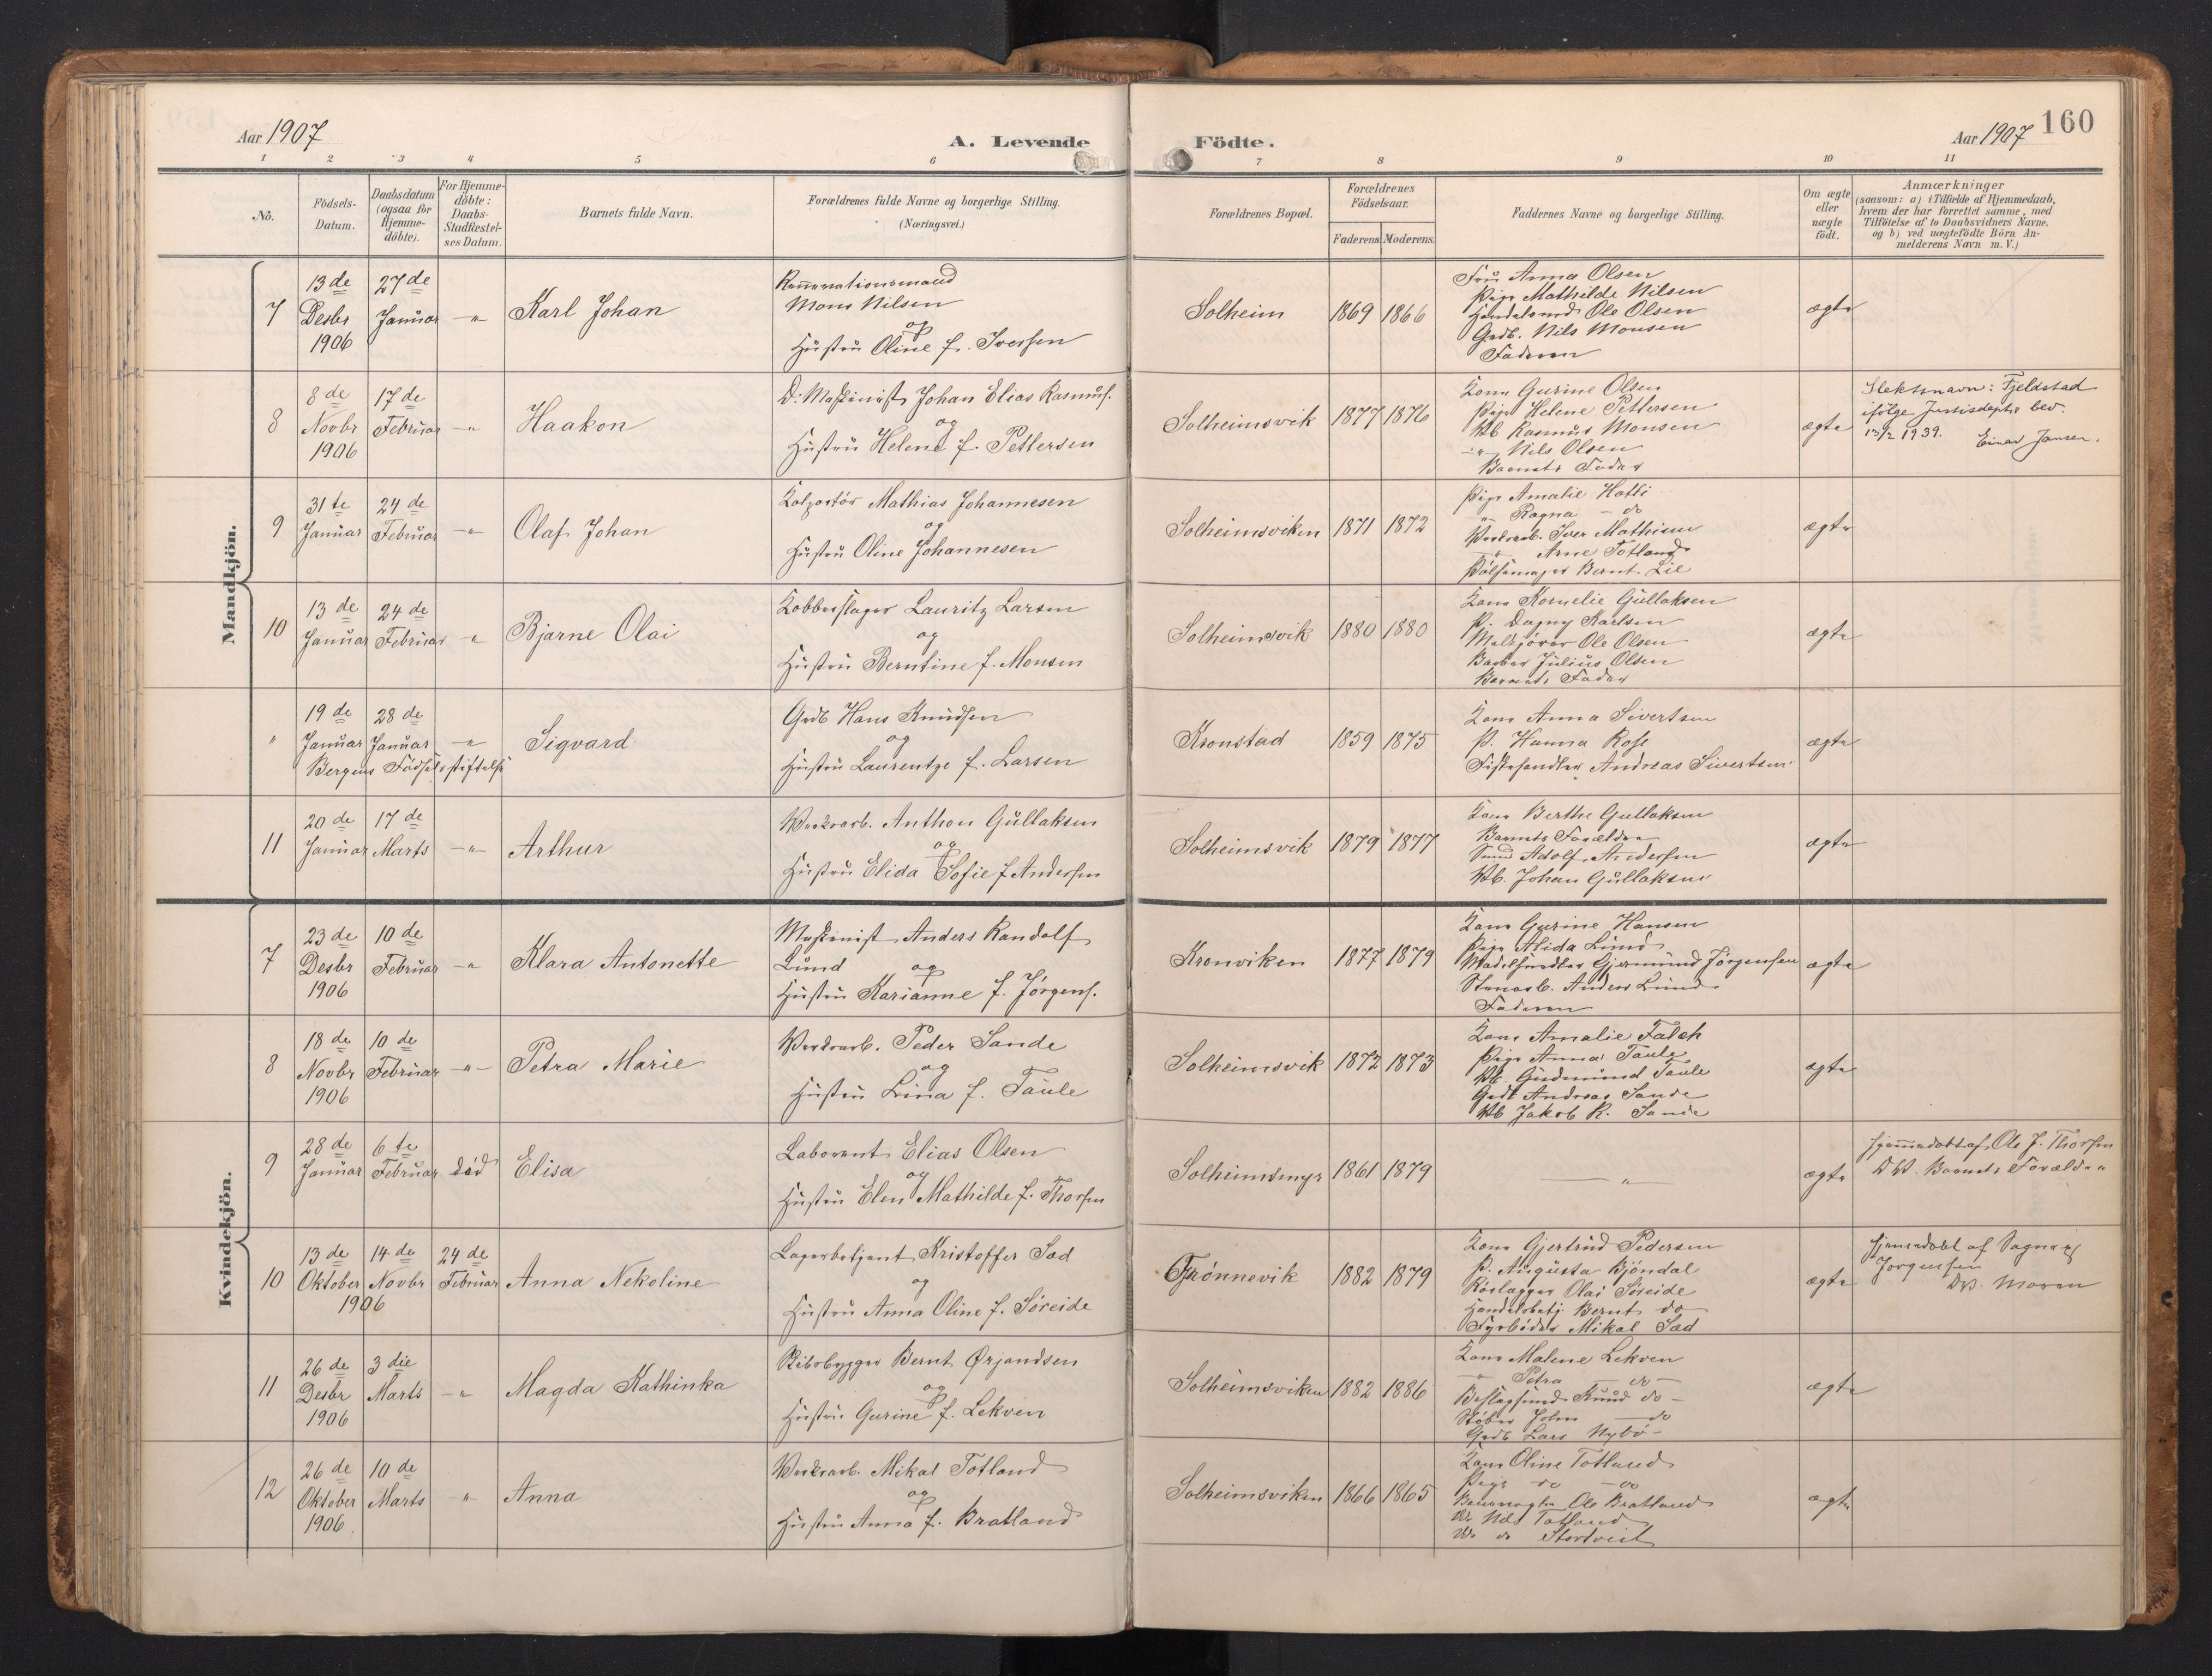 Aar 1907
A. Levende Födte.
Aar 1907
160
1 2 3 4 5 6 7 8 9 10 11
No.
Födsels-
Datum.
Daabsdatum
(ogsaa for
Hjemme-
döbte).
For Hjemme-
döbte:
Daabs-
Stadfæstel-
ses Datum.
Barnets fulde Navn.
Forældrenes fulde Navne og borgerlige Stilling.
(Næringsvei.)
Forældrenes Bopæl.
Forældrenes
Födselsaar.
Faderens. Moderens.
Faddernes Navne og borgerlige Stilling.
Om ægte
eller
uægte
födt.
Anmærkninger
(saasom: a) i Tilfælde af Hjemmedaab,
hvem der har forrettet samme, med
Tilföielse af to Daabsvidners Navne.
og b) ved uægtefödte Börn An-
melderens Navn m. V.)
Mandkjön.
7
13 de
Desbr
1906
27 de
Januar
-"-
Karl Johan
Renovationsmand
Mons Nilsen
og
Hustru Oline f. Iversen
Solheim
1869 1866
Fru Anna Olsen
Pige Mathilde Nilsen
Handelsmd Ole Olsen
Grdb. Nils Monsen
Faderen
ægte
8
8 de
Novbr
1906
17 de
Februar
-"-
Haakon
D. Maskinist Johan Elias Rasmus.
og
Hustru Helene f. Pettersen
Solheimsvik
1877 1876
Kone Gurine Olsen
Pige Helene Pettersen
Wb Rasmus Monsen
-"- Nils Olsen
Barnets Fader
ægte
Slektsnavn: Fjeldstad
ifølge Justisdepts bev.
13/2 1939. Einar Jansen.
9
31 te
Januar
24 de
Februar
-"-
Olaf Johan
Kolportör Mathias Johannesen
og
Hustru Oline Johannesen
Solheimsviken
1871 1872
Pige Amalie Hatli
-"- Ragna - do
Verksarb. Iver Mathisen
-"- Arne Totland
Pölsemager Bernt Lie
ægte
10
13 de
Januar
24 de
Februar
-"-
Bjarne Olai
Kobberslager Lauritz Larsen
og
Hustru Berntine f. Monsen
Solheimsvik
1880 1880
Kone Kornelie Gullaksen
P. Dagny Karlsen
Melkjører Ole Olsen
Barber Julius Olsen
Barnets Fader
ægte
"
19 de
Januar
28 de
Januar
-"-
Bergens Fødselsstiftelse
Sigvard
Grdb Hans Knudsen
og
Hustru Laurentze f. Larsen
Kronstad
1859 1875
Kone Anna Sivertsen
P. Hanna Rose
Fiskehandler Andreas Sivertsen
ægte
11
20 de
Januar
17 de
Marts
-"-
Arthur
Verksarb. Anthon Gullaksen
og
Hustru Elida Sofie f Andersen
Solheimsvik
1879 1877
Kone Berthe Gullaksen
Barnets Forældre
Smed Adolf Andersen
Wb. Johan Gullaksen
ægte
Kvindekjön.
7
23 de
Desbr
1906
10 de
Februar
-"-
Klara Antonette
Maskinist Anders Randolf
Lund og
Hustru Karianne f. Jörgens.
Kronviken
1877 1879
Kone Gurine Hansen
Pige Alida Lund
Gjermund Jörgensen
Stenarb. Anders Lund
Faderen
ægte
8
18 de
Novbr
1906
10 de
Februar
-"-
Petra Marie
Verksarb. Peder Sande
og
Hustru Lina f. Taule
Solheimsvik
1872 1873
Kone Amalie Falch
Pige Anna Taule
Wb. Gudmund Taule
Grdb Andreas Sande
Wb Jakob R. Sande
ægte
9
28 de
Januar
6 te
Februar
död
Elisa
Laborant Elias Olsen
og
Hustru Elen Mathilde f. Thorsen
Solheimsmyr
1861 1879
-"-
ægte
Hjemmedøbt af Ole J. Thorsen
D W. Barnets Forældre
10
13 de
Oktober
1906
14 de
Novbr
24 de
Februar
Anna Nekoline
Lagerbetjent Kristoffer Sæd
og
Hustru Anna Oline f. Søreide
Grønnevik
1882 1879
Kone Gjertrud Pedersen
P. Augusta Bjöndal
Rörlægger Olai Søreide
Handelsbetj. Bernt do
Fyrbøder Mikal Sæd
ægte
Hjemmedøbt af Sogneps
Jørgensen
DW. Moren
11
26 de
Desbr
1906
3 die
Marts
-"-
Magda Kathinka
Skibsbygger Bernt Ørjandsen
og
Hustru Gurine f. Lekven
Solheimsviken
1882 1886
Kone Malene Lekven
-"- Petra - do -
Beslagsmed Knud do -
Støber John - do
Grdb Lars Nybö
ægte
12
26 de
Oktober
1906
10 de
Marts
-"-
Anna
Verksarb. Mikal Totland
og
Hustru Anna f. Bratland
Solheimsviken
1866 1865
Kone Oline Totland
Pige do - do
Ole Bratland
do. Nils Totland
do. do Stordveit
ægte